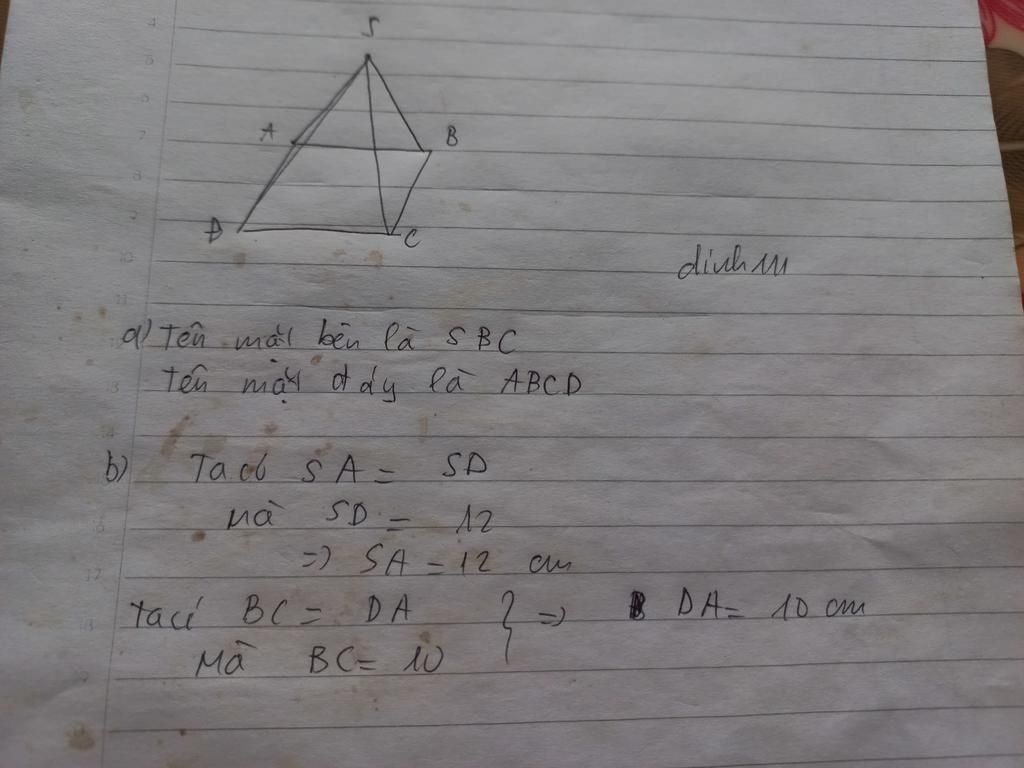 S
A
B
D
C
a) Tên mặt bên là SBC
Tên mặt đáy là ABCD
b) Ta có SA = SD
Mà SD = 12
=> SA = 12 cm
Ta có BC = DA } => DA = 10 cm
Mà BC = 10